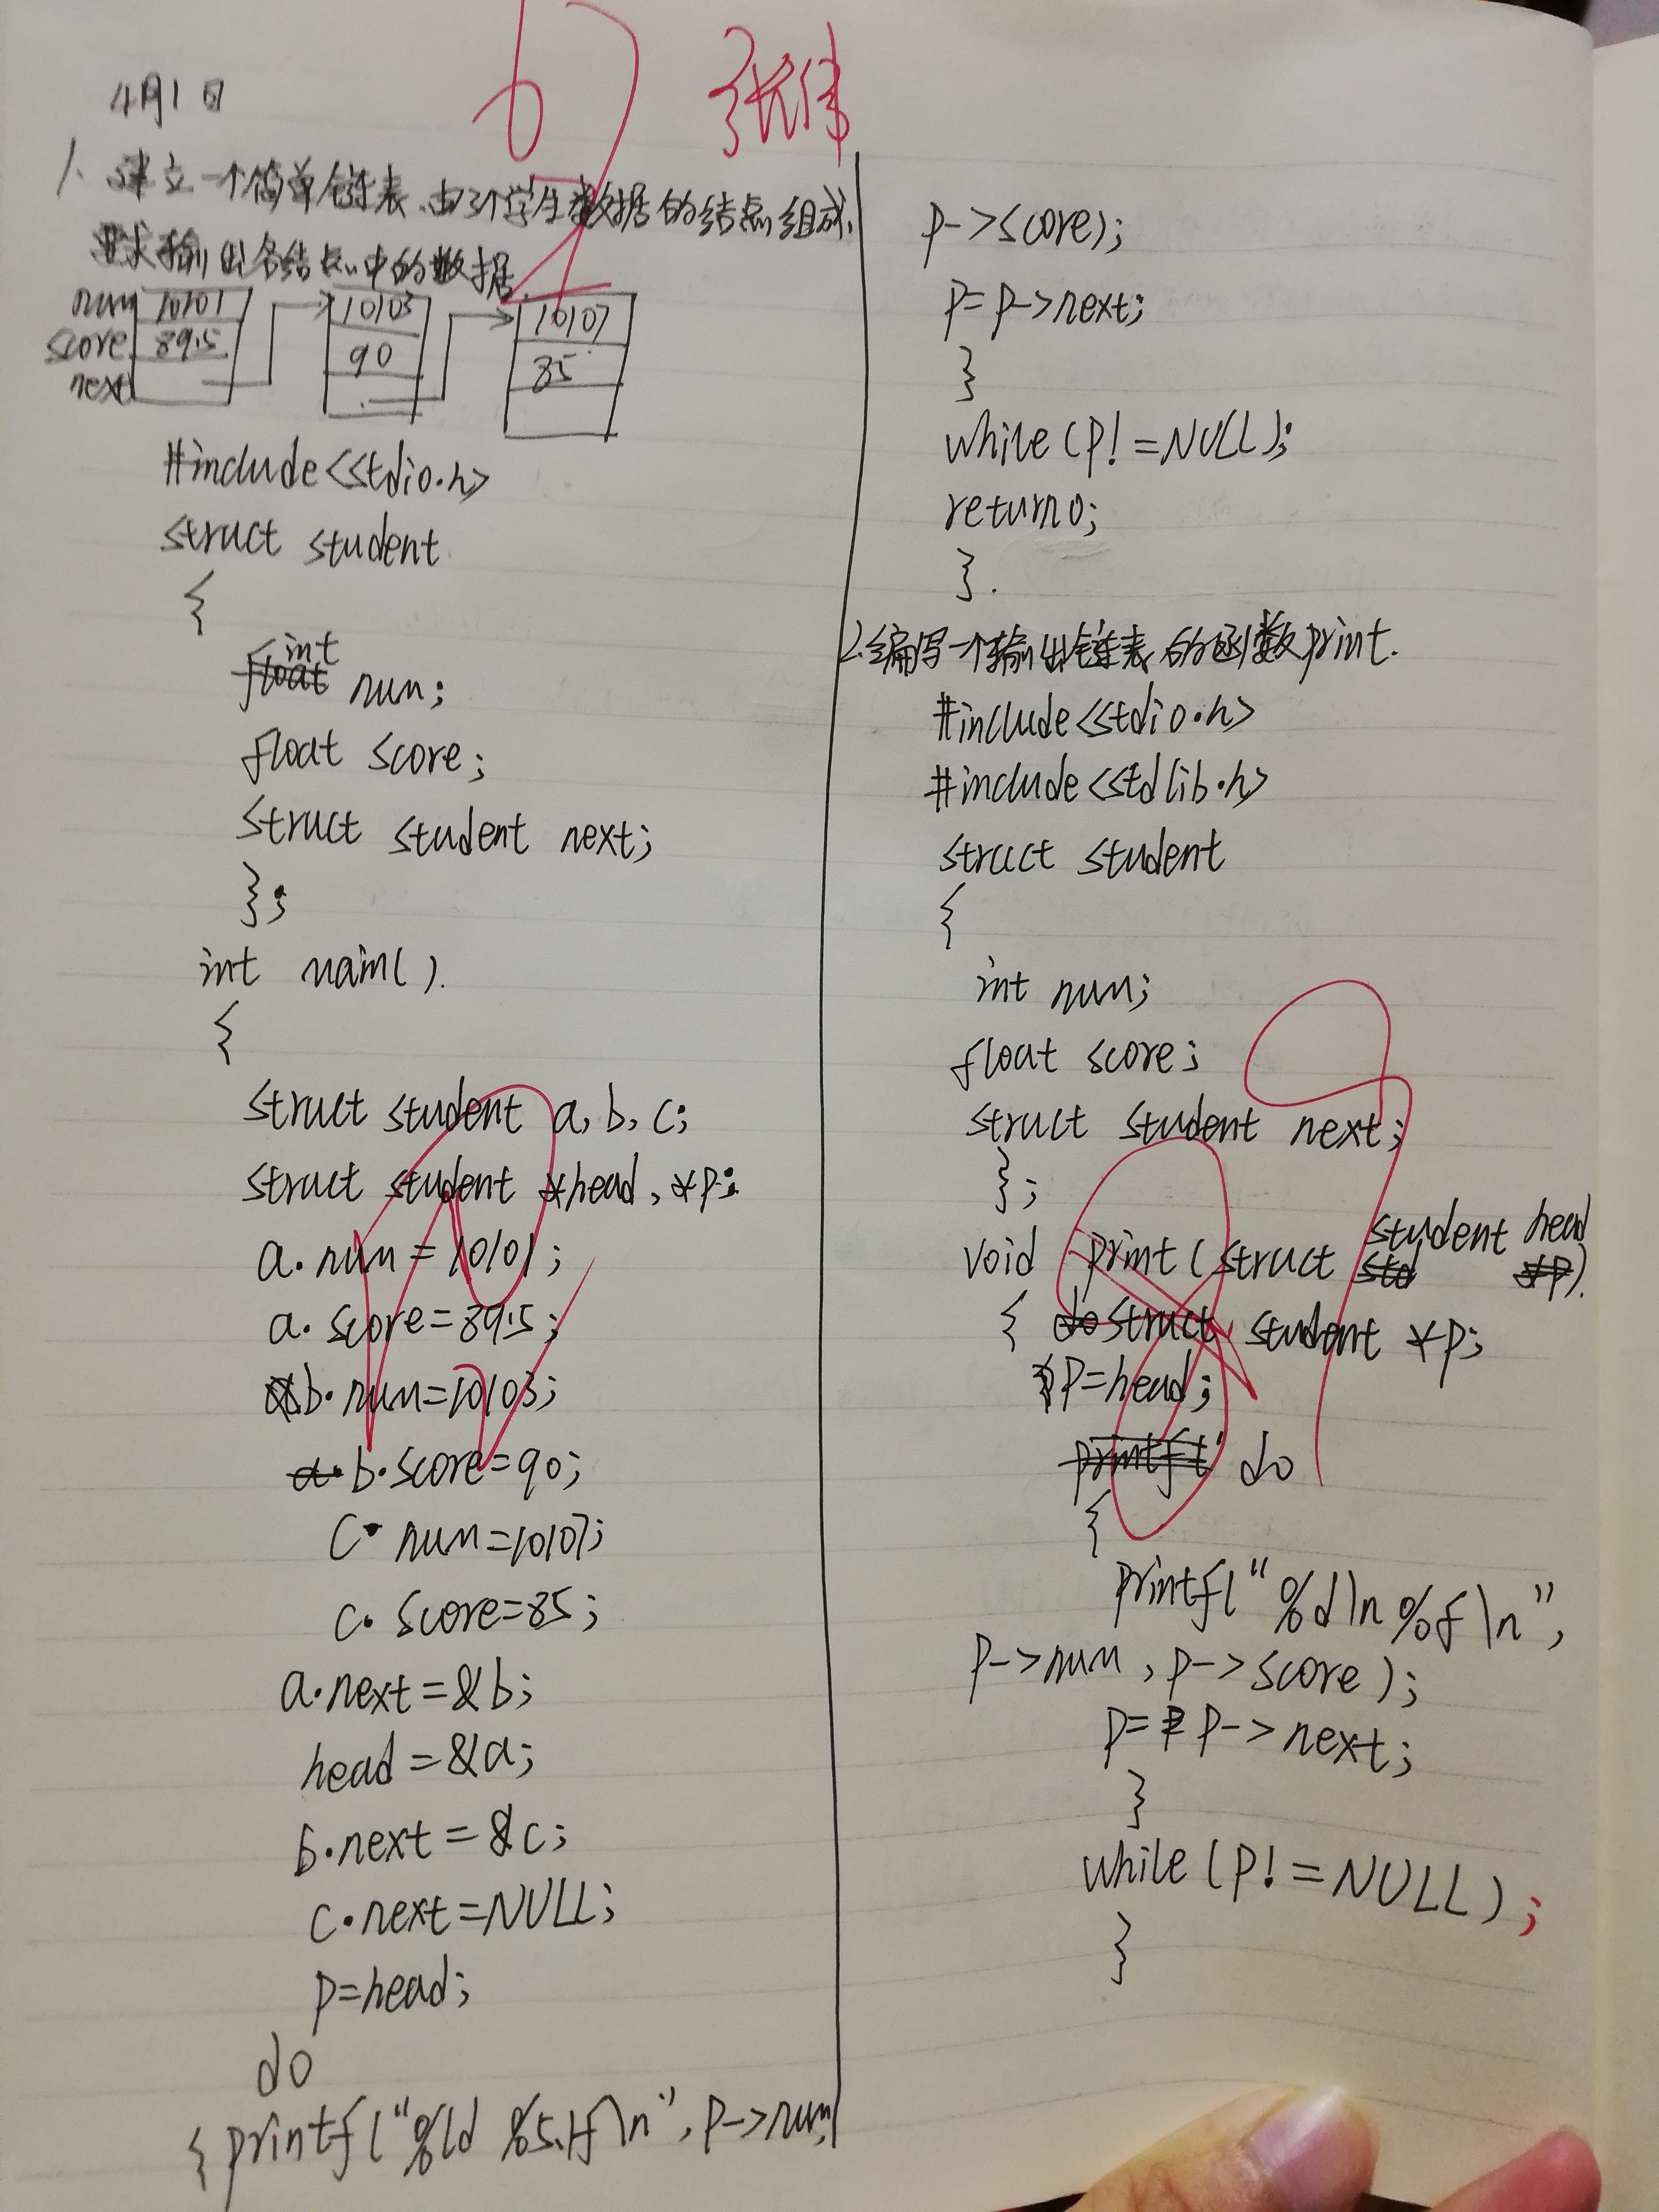 4月1日
张伟
1、建立一个简单链表,由3个学生数据的结点组成,
要求输出各结点中的数据.
num 10101 10103 10107
score 89.5 90 85
next
#include<stdio.h>
struct student
{
int
float num;
float score;
struct student next;
};
int main().
{
struct student a, b, c;
struct student *head, *p;
a. num = 10101;
a. score=89.5;
b. num=10103;
a. b. score=90;
c. num=10107;
c. score=85;
a.next=&b;
head=&a;
b.next=&c;
c.next=NULL;
p=head;
do
{ printf("%ld %5.1f\n", p->num,
p->score);
p=p->next;
}
while(p!=NULL);
return0;
}.
2.编写一个输出链表的函数print.
#include<stdio.h>
#include<stdlib.h>
struct student
{
int num;
float score;
struct student next;
};
student head
void print(struct std *p).
{ do struct student *p;
p=head;
printf(" do
{
printf("%d\n%f\n",
p->num, p->score);
p= p->next;
}
while(p!=NULL);
}